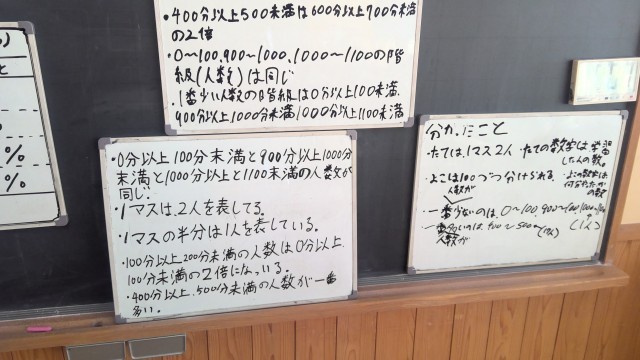 ・400分以上500未満は600分以上700分未満
の2倍
・0～100,900～1000、1000～1100の階
級(人数)は同じ
・1番少い人数の階級は0分以上100未満
900分以上1000分未満1000分以上1100未満
・0分以上100分未満と900分以上1000分
未満と1000分以上と1100未満の人数が
同じ。
・1マスは、2人を表してる。
・1マスの半分は1人を表している。
・100分以上、200分未満の人数は0分以上、
100分未満の2倍になっいる。
・400分以上、500分未満の人数が一番
多い。
分かったこと
・たては、1マス2人
・たての数字は学習
した人の数。
・よこは100づつ分けられる
・よこの数字は
何分やったか
の数字
人数が
・一番少ないのは、0～100,900～
(1人)
・一番多いのは、400～500
人数が
%
%